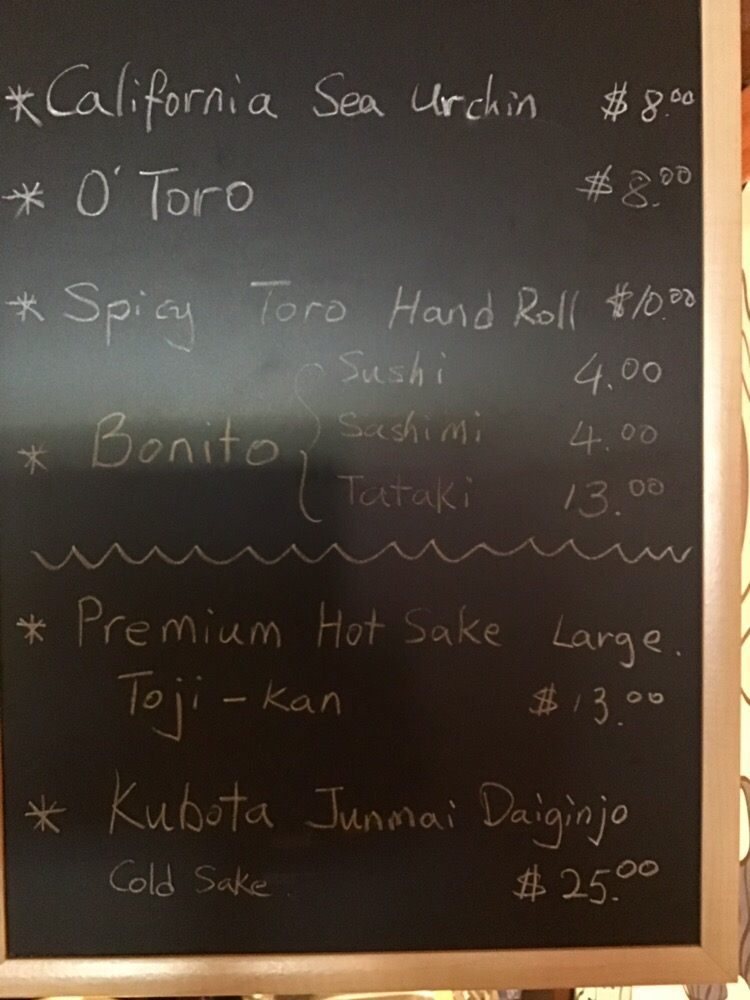 * California Sea Urchin $8.00
* O'Toro $8.00
* Spicy Toro Hand Roll $10.00
Sushi 4.00
* Bonito Sashimi 4.00
Tataki 13.00
* Premium Hot Sake Large.
Toji-kan $13.00
* Kubota Junmai Daiginjo
Cold Sake $25.00